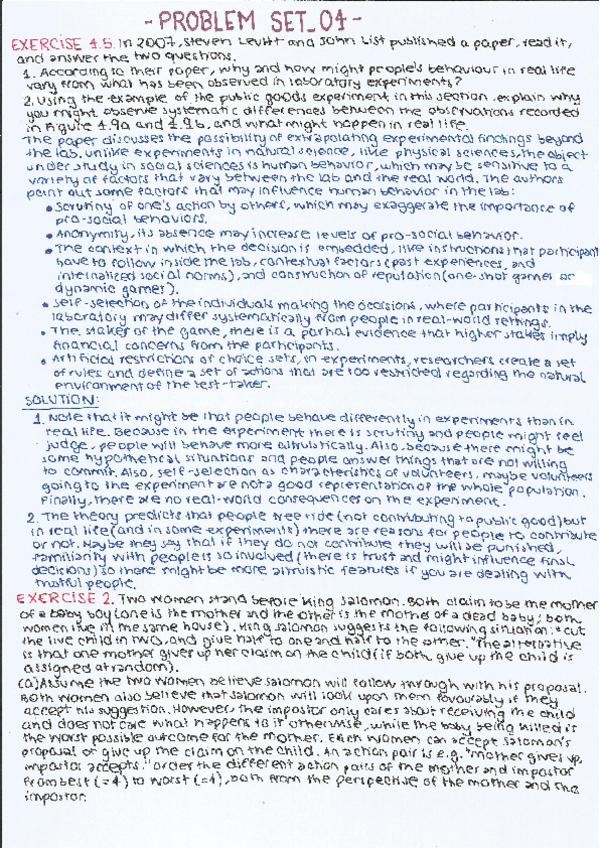 - PROBLEM SET_04 -
EXERCISE 4.5. In 2007, Steven Levitt and John List published a paper, read it,
and answer the two questions.
1. According to their paper, why and how might people's behaviour in real life
vary from what has been observed in laboratory experiments?
2. Using the example of the public goods experiment in this section, explain why
you might observe systematic differences between the observations recorded
in Figure 4.9a and 4.9b, and what might happen in real life.
The paper discusses the possibility of extrapolating experimental findings beyond
the lab. Unlike experiments in natural science, like physical sciences, the object
under study in social sciences is human behavior, which may be sensitive to a
variety of factors that vary between the lab and the real world. The authors
point out some factors that may influence human behavior in the lab:
• Scrutiny of one's action by others, which may exaggerate the importance of
pro-social behaviors.
• Anonymity, its absence may increase levels of pro-social behavior.
• The context in which the decision is embedded, like instructions that participant
have to follow inside the lab, contextual factors (past experiences, and
internalized social norms), and construction of reputation (one-shot games or
dynamic games).
• Self-selection of the individuals making the decisions, where participants in the
laboratory may differ systematically from people in real-world settings.
• The stakes of the game, there is a partial evidence that higher stakes imply
financial concerns from the participants.
• Artificial restrictions of choice sets, in experiments, researchers create a set
of rules and define a set of actions that are too restricted regarding the natural
environment of the test-taker.
SOLUTION:
1. Note that it might be that people behave differently in experiments than in
real life. Because in the experiment there is scrutiny and people might feel
judge, people will behave more altruistically. Also, because there might be
some hypothetical situations and people answer things that are not willing
to commit. Also, self-selection as characteristics of volunteers, maybe volunteers
going to the experiment are not a good representation of the whole population.
Finally, there are no real-world consequences on the experiment.
2. The theory predicts that people free ride (not contributing to public good) but
in real life (and in some experiments) there are reasons for people to contribute
or not. Maybe they say that if they do not contribute they will be punished,
familiarity with people is so involved (there is trust and might influence final
decisions) so there might be more altruistic features if you are dealing with
trustful people.
EXERCISE 2. Two women stand before King Salomon. Both claim to be the mother
of a baby boy (one is the mother and the other is the mother of a dead baby; both
women live in the same house). King Salomon suggests the following situation: "Cut
the live child in two, and give half to one and half to the other." The alternative
is that one mother gives up her claim on the child (if both give up the child is
assigned at random).
(a) Assume the two women believe Salomon will follow through with his proposal.
Both women also believe that Salomon will look upon them favourably if they
accept his suggestion. However, the impostor only cares about receiving the child
and does not care what happens to it otherwise, while the baby being killed is
the worst possible outcome for the mother. Each women can accept Salomon's
proposal or give up the claim on the child. An action pair is e.g. "mother gives up,
impostor accepts." Order the different action pairs of the mother and impostor
from best (=4) to worst (=1), both from the perspective of the mother and the
impostor.